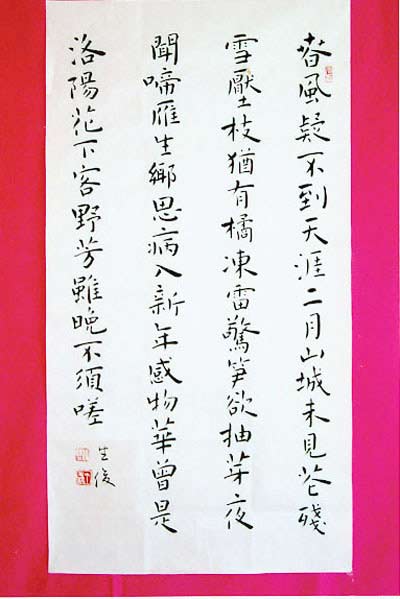 春風疑不到天涯二月山城未見花殘
雪壓枝猶有橘凍雷驚笋欲抽芽夜
聞啼雁生鄉思病入新年感物華曾是
洛陽花下客野芳雖晚不須嗟
生俊